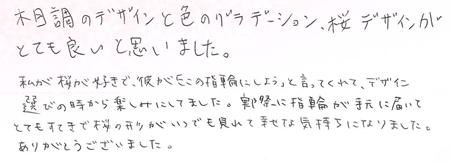 木目調のデザインと色のグラデーション、桜デザインが
とても良いと思いました。
私が桜が好きで、彼がこの指輪にしようと言ってくれて、デザイン
選びの時から楽しみにしてました。実際に指輪が手元に届いて
とてもすてきで桜の形がいつでも見れて幸せな気持ちになりました。
ありがとうございました。